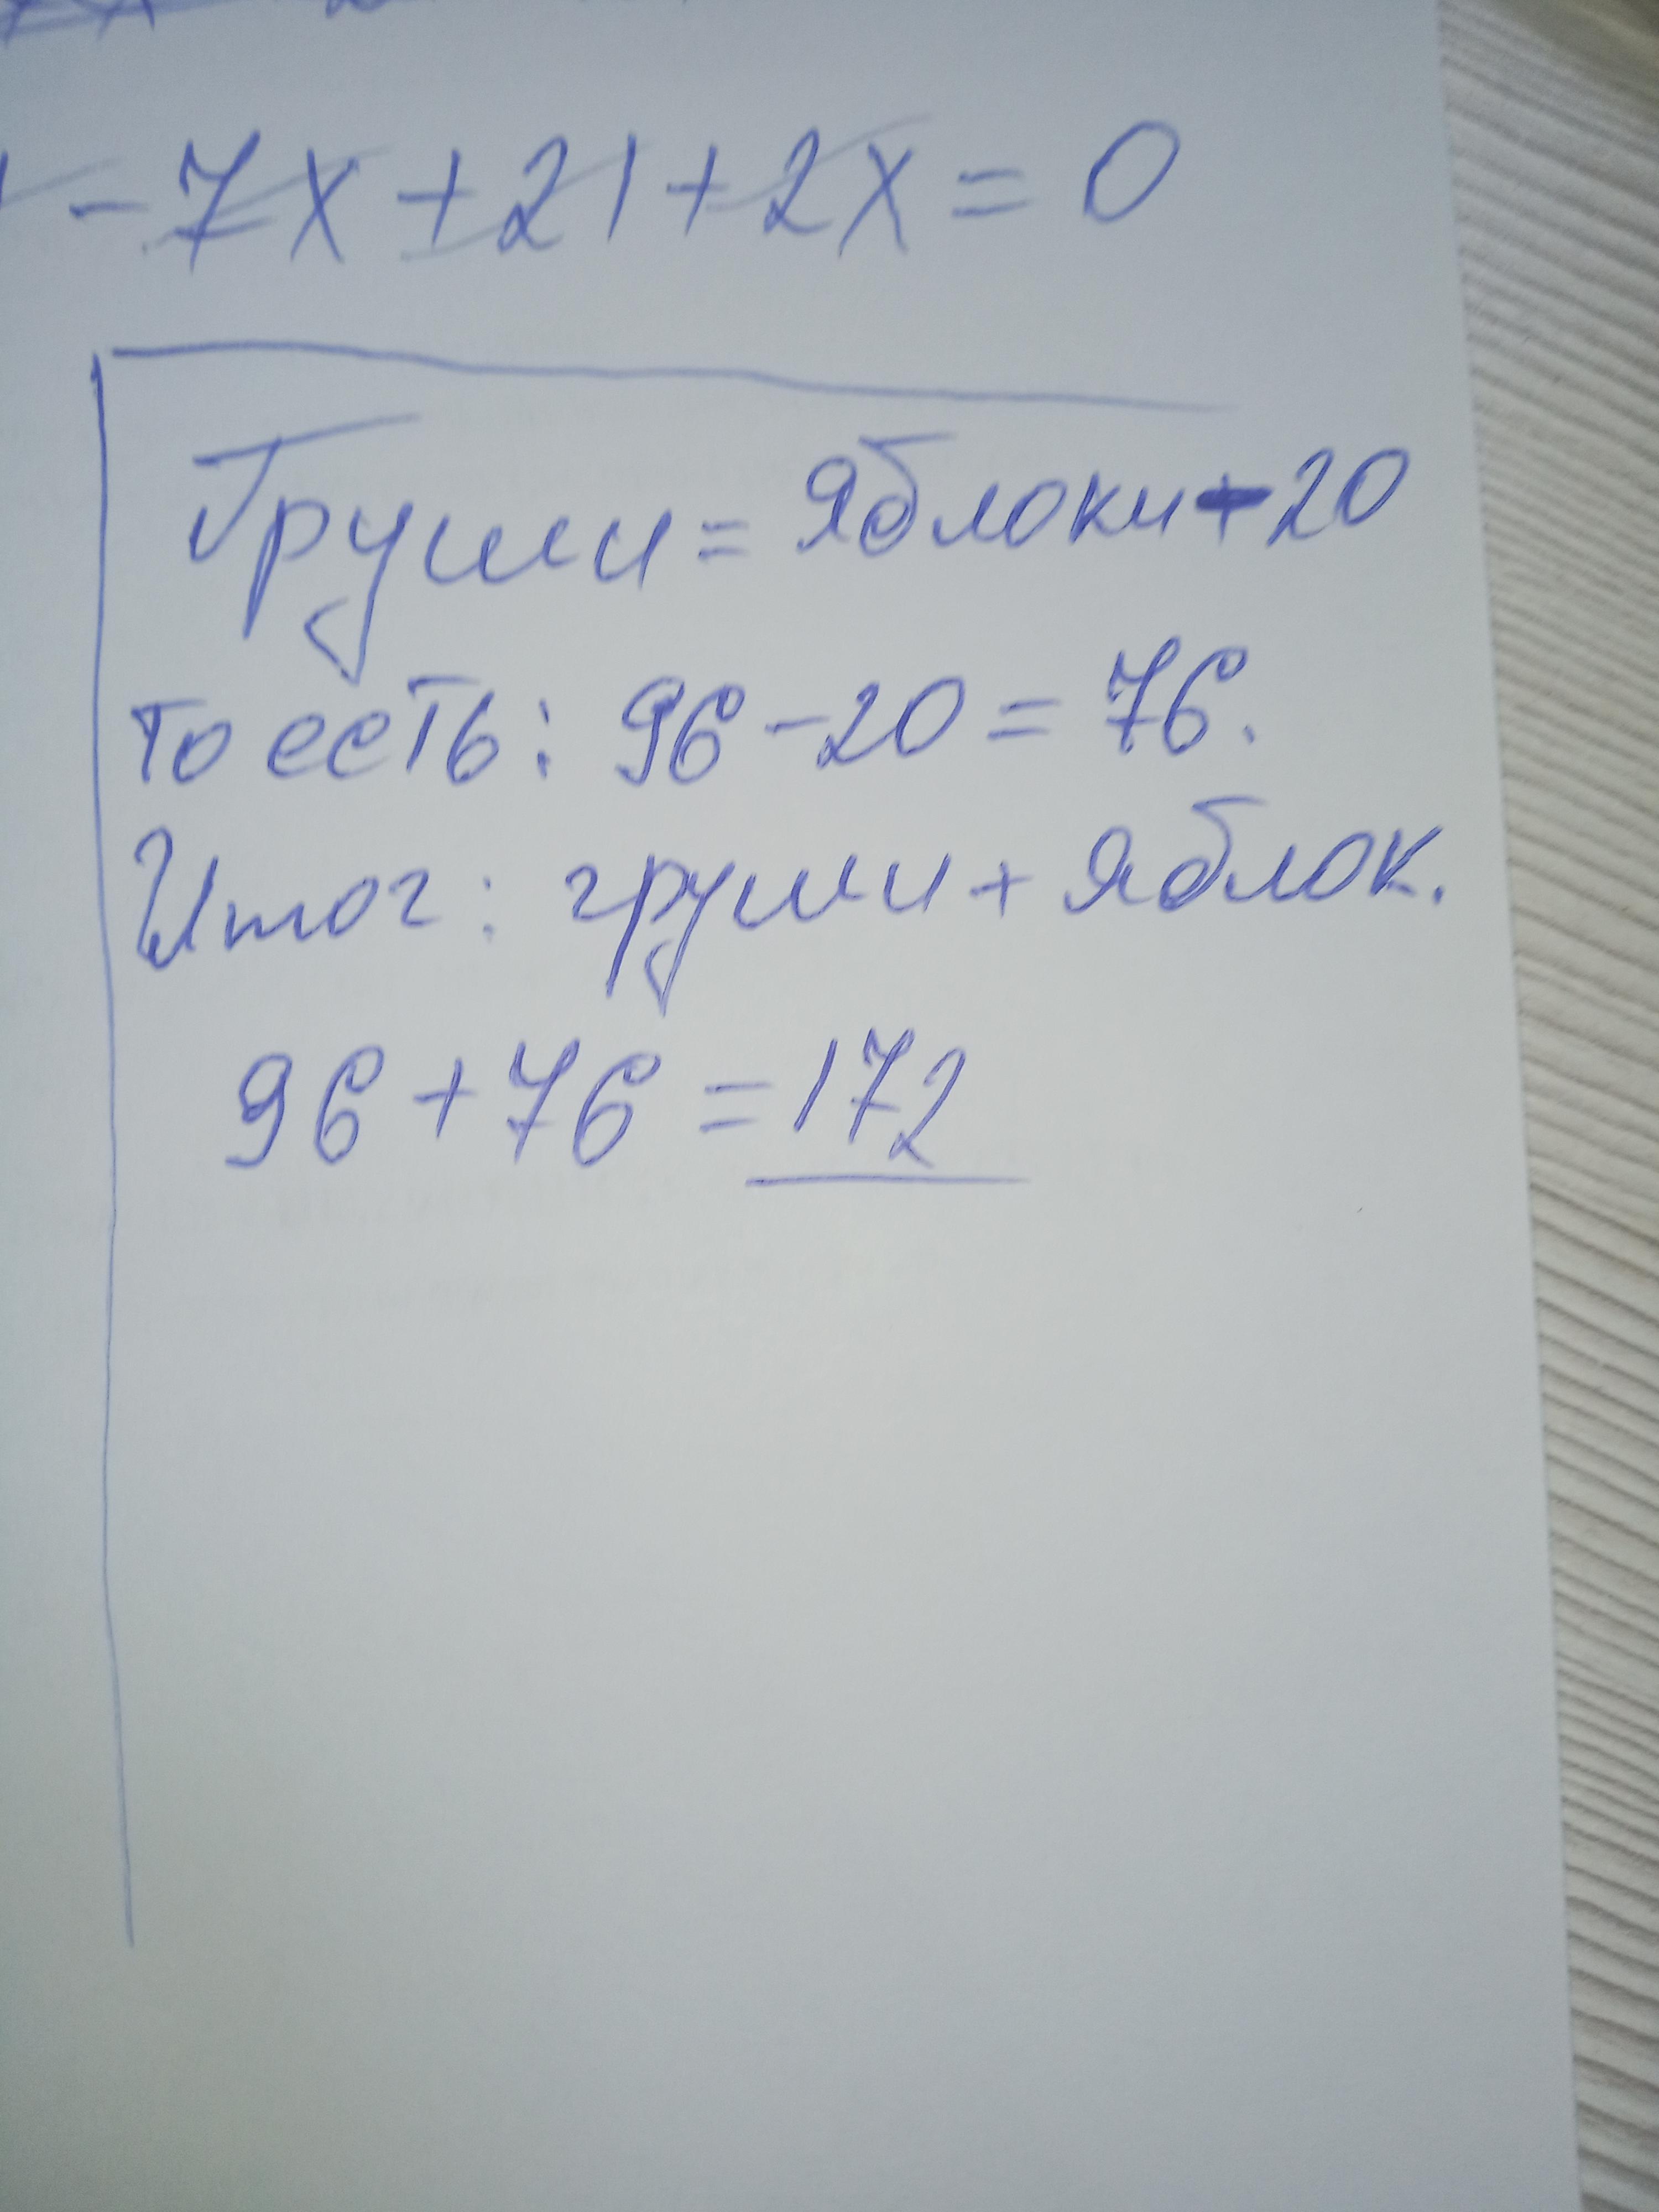 - 7x + 21 + 2x = 0
Груши = Яблоки - 20
то есть: 96 - 20 = 76.
Итог: груши + Яблок.
96 + 76 = 172